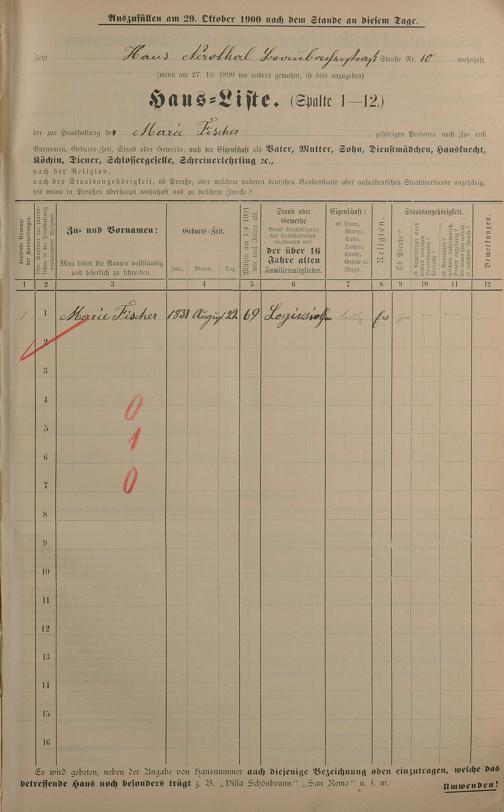 Auszufüllen am 29. Oktober 1900 nach dem Stande an diesem Tage.
Jetzt Haus Nerothal Straße Nr. 10 wohnhaft.
(wenn am 27. 10. 1899 wo anders gewohnt, ist dies anzugeben)
Haus-Liste. (Spalte 1—12.)
der zur Haushaltung der Marie Fischer gehörigen Personen nach Zu- und
Vornamen, Geburts-Zeit, Stand oder Gewerbe, nach der Eigenschaft als Vater, Mutter, Sohn, Dienstmädchen, Hausknecht,
Köchin, Diener, Schlossergeselle, Schreinerlehrling ꝛc.,
nach der Religion,
nach der Staatsangehörigkeit, ob Preuße, oder welchem anderen deutschen Bundesstaate oder außerdeutschen Staatsverbande angehörig,
seit wann in Preußen überhaupt wohnhaft und zu welchem Zweck?
Laufende Nummer
Zu- und Vornamen:
Man bittet die Namen vollständig
und leserlich zu schreiben.
Geburts-Zeit.
Jahr. Monat. Tag
Mithin am 1/4 1901
wie viel Jahre alt.
Stand oder
Gewerbe
der über 16
Jahre alten
Familienmitglieder.
Eigenschaft:
ob Vater,
Mutter,
Sohn,
Tochter,
Knecht,
Geselle ꝛc.
Magd.
Religion.
Staatsangehörigkeit.
Ob Preuße?
Bemerkungen.
1 2 3 4 5 6 7 8 9 10 11 12
1 1 Marie Fischer 1831 August 22 69
2
3
4
0
5
1
6
7
0
8
9
10
11
12
13
14
15
16
Es wird gebeten, neben der Angabe von Hausnummer auch diejenige Bezeichnung oben einzutragen, welche das
betreffende Haus noch besonders trägt z. B. „Villa Schönbrunn“ „San Remo“ u. s. w.
Umwenden!